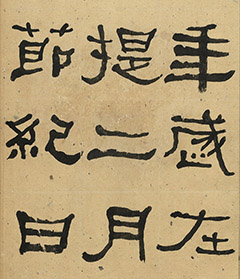 年歲在
提二月
節紀日